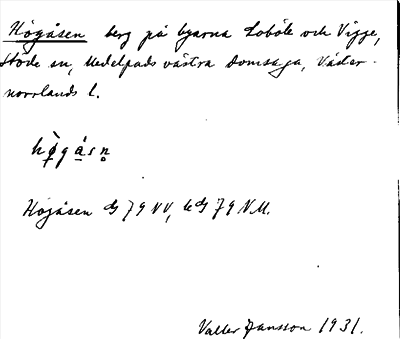 Högåsen berg på byarna Loböle och Vigge,
Stöde sn, Medelpads västra domsaga, Väster-
norrlands l.
hö̀gåsn̥
Högåsen 79 NV, 79 NM.
Valter Jansson 1931.